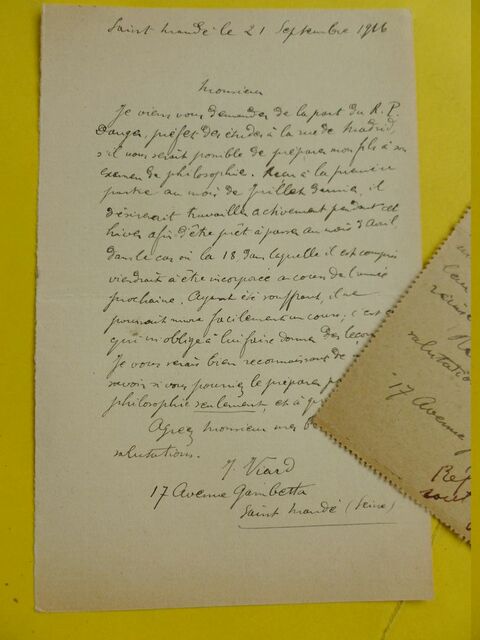 Saint Mandé le 21 Septembre 1916
Monsieur
Je viens vous demander de la part du R. P.
Danger, préfet des études à la rue de Madrid,
s'il vous serait possible de préparer mon fils à son
examen de philosophie. Reçu à la première
partie au mois de Juillet dernier, il
désirerait travailler activement pendant cet
hiver afin d'être prêt à passer au mois d'Avril
dans le cas où la 18 dans laquelle il est compris
viendrait à être incorporée au cours de l'année
prochaine. Ayant été souffrant, il ne
pourrait suivre facilement un cours, c'est c
qui m'oblige à lui faire donner des leçons
Je vous serais bien reconnaissant de
savoir si vous pourriez le préparer p
philosophie seulement, et à qu
Agréez Monsieur mes
salutations.
J. Viard
17 Avenue Gambetta
Saint Mandé (Seine)
salutatio
17 Avenue
Rép